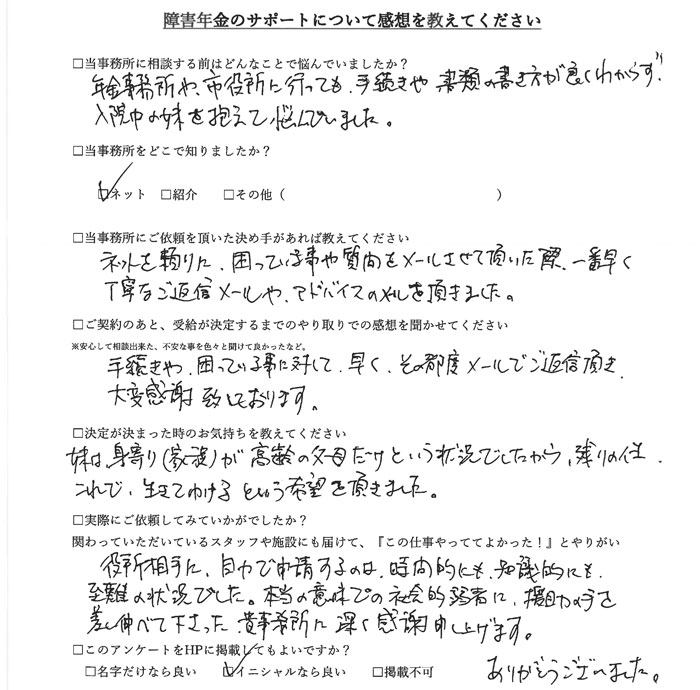 障害年金のサポートについて感想を教えてください
□当事務所に相談する前はどんなことで悩んでいましたか？
年金事務所や、市役所に行っても、手続きや 書類の書き方が良くわからず、
入院中の妹を抱えて悩んでいました。
□当事務所をどこで知りましたか？
☑ネット □紹介 □その他（ ）
□当事務所にご依頼を頂いた決め手があれば教えてください
ネットを頼りに、困っている事や質問をメールさせて頂いた際、一番早く
丁寧なご返信メールや、アドバイスのメールを頂きました。
□ご契約のあと、受給が決定するまでのやり取りでの感想を聞かせてください
※安心して相談出来た、不安な事を色々と聞けて良かったなど。
手続きや、困っている事に対して、早く、その都度メールでご返信頂き、
大変感謝致しております。
□決定が決まった時のお気持ちを教えてください
妹は、身寄り（家族）が高齢の父母だけという状況でしたから、残りの人生、
これで、生きてゆけるという希望を頂きました。
□実際にご依頼してみていかがでしたか？
関わっていただいているスタッフや施設にも届けて、『この仕事やっててよかった！』とやりがい
役所相手に、自力で申請するのは、時間的にも、知識的にも、
至難の状況でした。本当の意味での社会的弱者に、援助の手を
差し伸べて下さった貴事務所に深く感謝申し上げます。
□このアンケートをHPに掲載してもよいですか？
□名字だけなら良い ☑イニシャルなら良い □掲載不可
ありがとうございました。